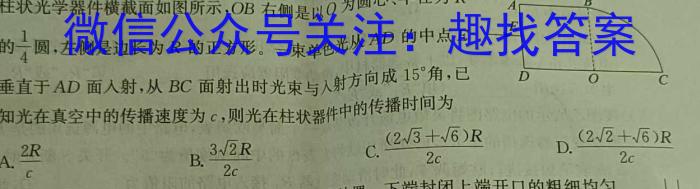 柱状光学器件横截面如图所示,OB 右侧是以O为圆心、半径为R
的1/4圆,左侧是边长为R的正方形。一束单色光从AD的中点
微信公众号关注：趣找答案
垂直于AD面入射,从BC面射出时光束与入射方向成15°角,已
知光在真空中的传播速度为c,则光在柱状器件中的传播时间为
A. 2R/c B. 3√2R/2c C. (2√3+√6)R/2c D. (2√2+√6)R/2c
A B
D O C
下端封闭上端开口的粗细均匀